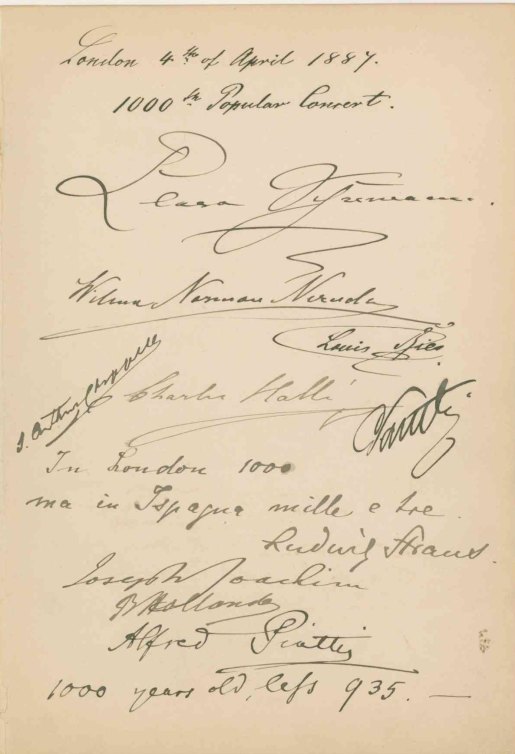 London 4th of April 1887.
1000th Popular Concert.
Clara Schumann.
Wilma Norman Neruda
Louis Ries
S. Arthur Chappell
Charles Hallé
In London 1000
ma in Ispagna mille e tre
Ludwig Straus.
Joseph Joachim
B Hollander
Alfred Piatti
1000 years old, less 935. —